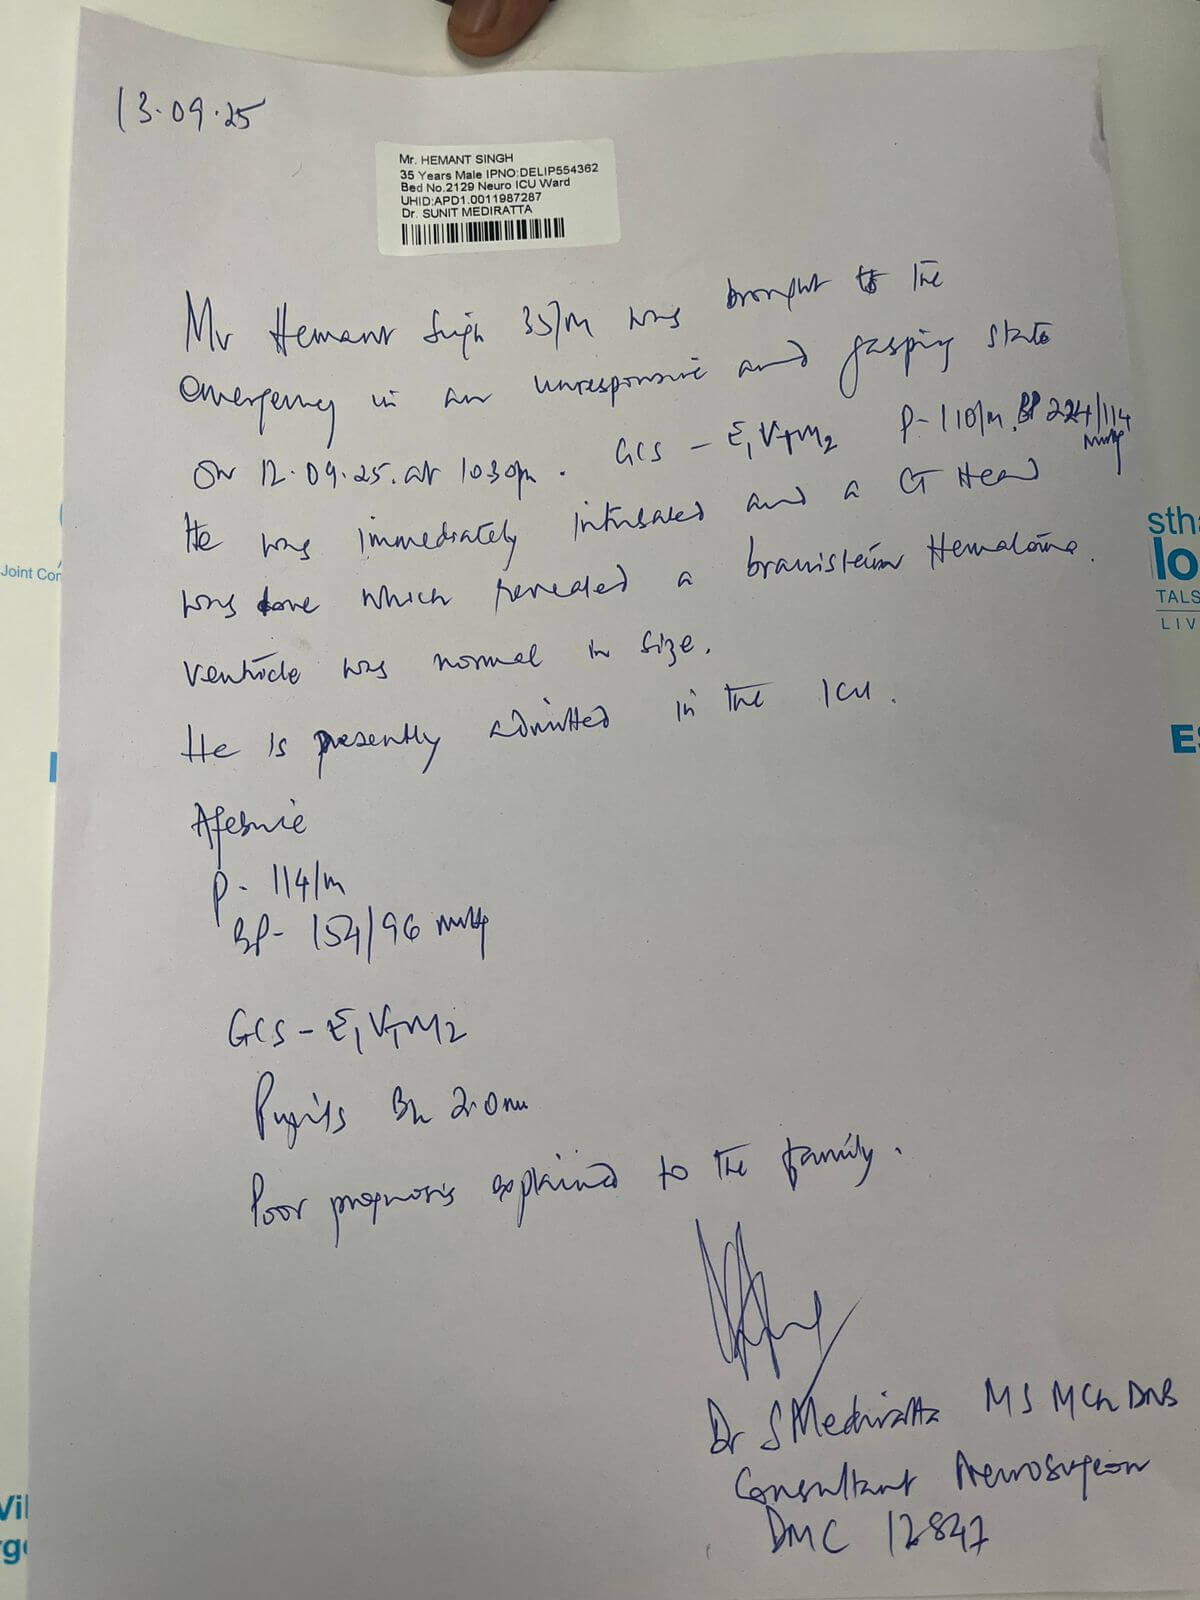 13.09.25
Mr. HEMANT SINGH
35 Years Male IPNO:DELIP554362
Bed No.2129 Neuro ICU Ward
UHID:APD1.0011987287
Dr. SUNIT MEDIRATTA
Mr Hemant Singh 35/m was brought to the
emergency in an unresponsive and gasping state
on 12.09.25. at 1030pm. GCS - E1VTM2 P-110/m, BP 224/114
mmHg
He was immediately intubated and a CT Head
was done which revealed a brainstem Hematoma.
ventricle was normal in size.
He is presently admitted in the ICU.
Afebrile
P- 114/m
BP- 154/96 mmHg
GCS - E1VTM2
Pupils B/L 2.0mm
Poor prognosis explained to the family.
Dr S Mediratta MS MCh DNB
Consultant Neurosurgeon
DMC 12847
Joint Con
stha
lo
TALS
LIV
ES
Vil
rge